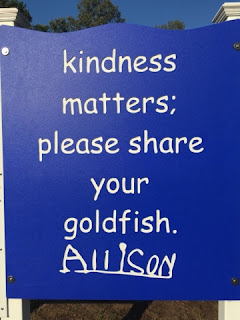 kindness
matters;
please share
your
goldfish.
Allison